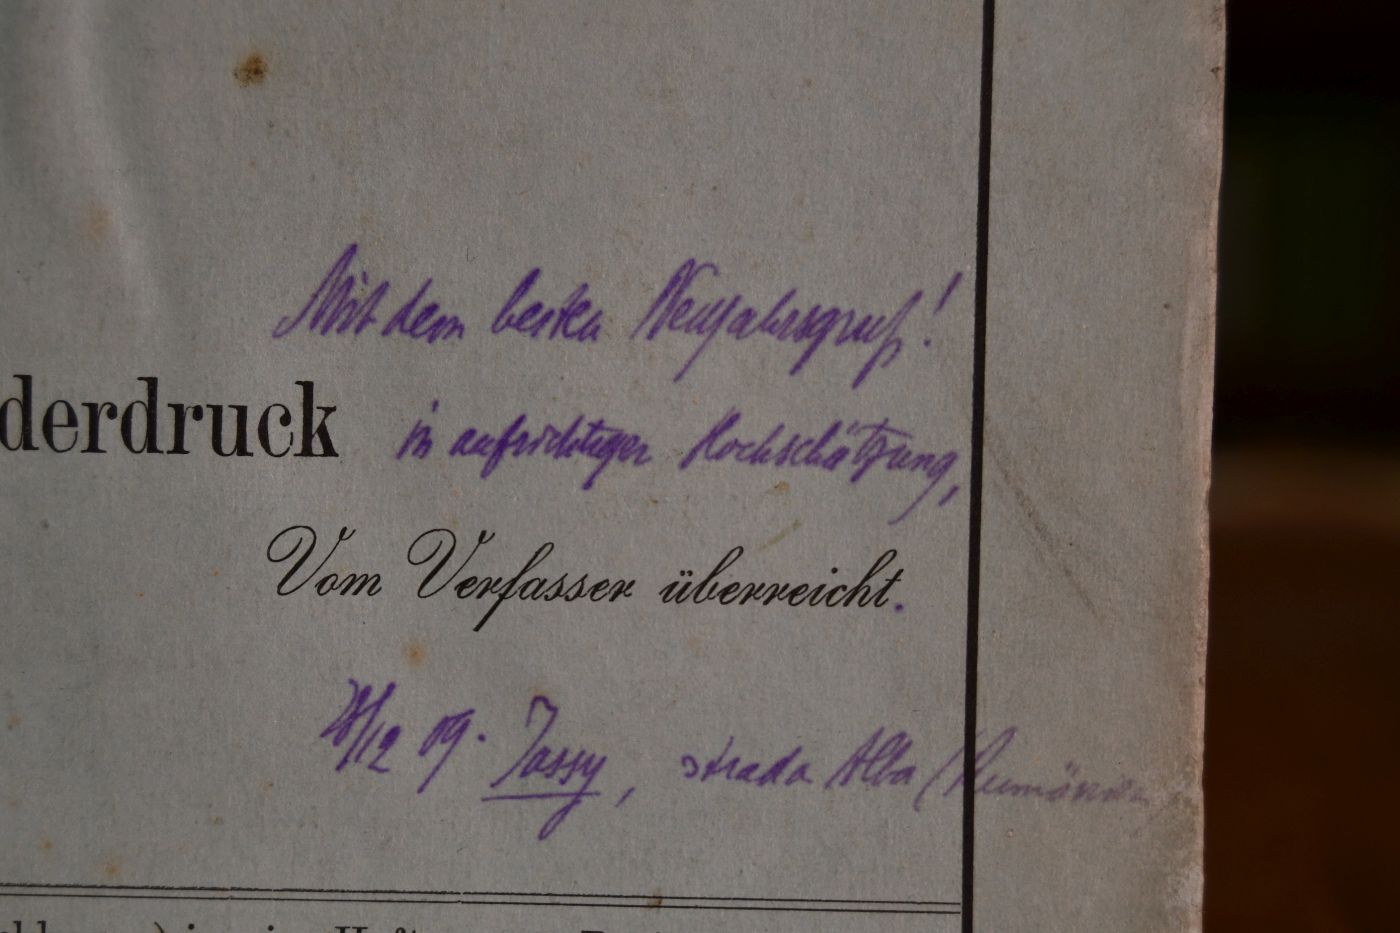 Mit dem besten Neujahrsgruß!
derdruck
in aufrichtiger Hochschätzung,
Vom Verfasser überreicht.
/12 09. Jassy, strada Alba (Rumänien
in Heft